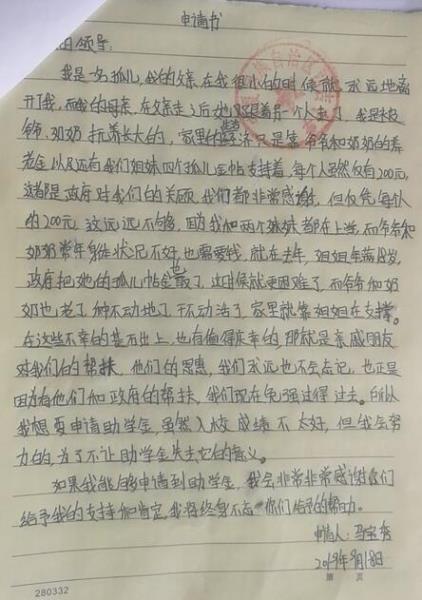 申请书
领导:
我是一名孤儿,我的父亲在我很小的时候就永远地离
开了我,而我的母亲,在父亲走之后她又跟着另一个人走了,我是被
爷爷、奶奶抚养长大的,家里的经济只是靠爷爷和奶奶的养
老金以及还有我们姐妹四个孤儿金帖支持着,每个人虽然仅有200元,
这都是政府对我们的关顾,我们都非常感谢,但仅凭每个人
的200元,这远远不够,因为我和两个妹妹都在上学,而爷爷和
奶奶常年身体状况不好,也需要钱,就在去年,姐姐年满18岁,
政府把她的孤儿帖金也取了,这时候就更困难了,而爷爷和奶
奶也老了,种不动地了,干不动活了,家里就靠姐姐在支撑。
在这些不幸的基石出上,也有值得庆幸的,那就是亲戚朋友
对我们的帮扶,他们的恩惠,我们永远也不会忘记,也正是
因为有他们和政府的帮扶,我们现在免强过得过去。所以
我想要申请助学金,虽然入校成绩不太好,但我会努
力的,为了不让助学金失去它的意义。
如果我能够申请到助学金,我会非常非常感谢你们
给予我的支持和肯定,我将终身不忘你们给予的帮助。
申请人:马宝秀
2019年9月18日
第 页
280332